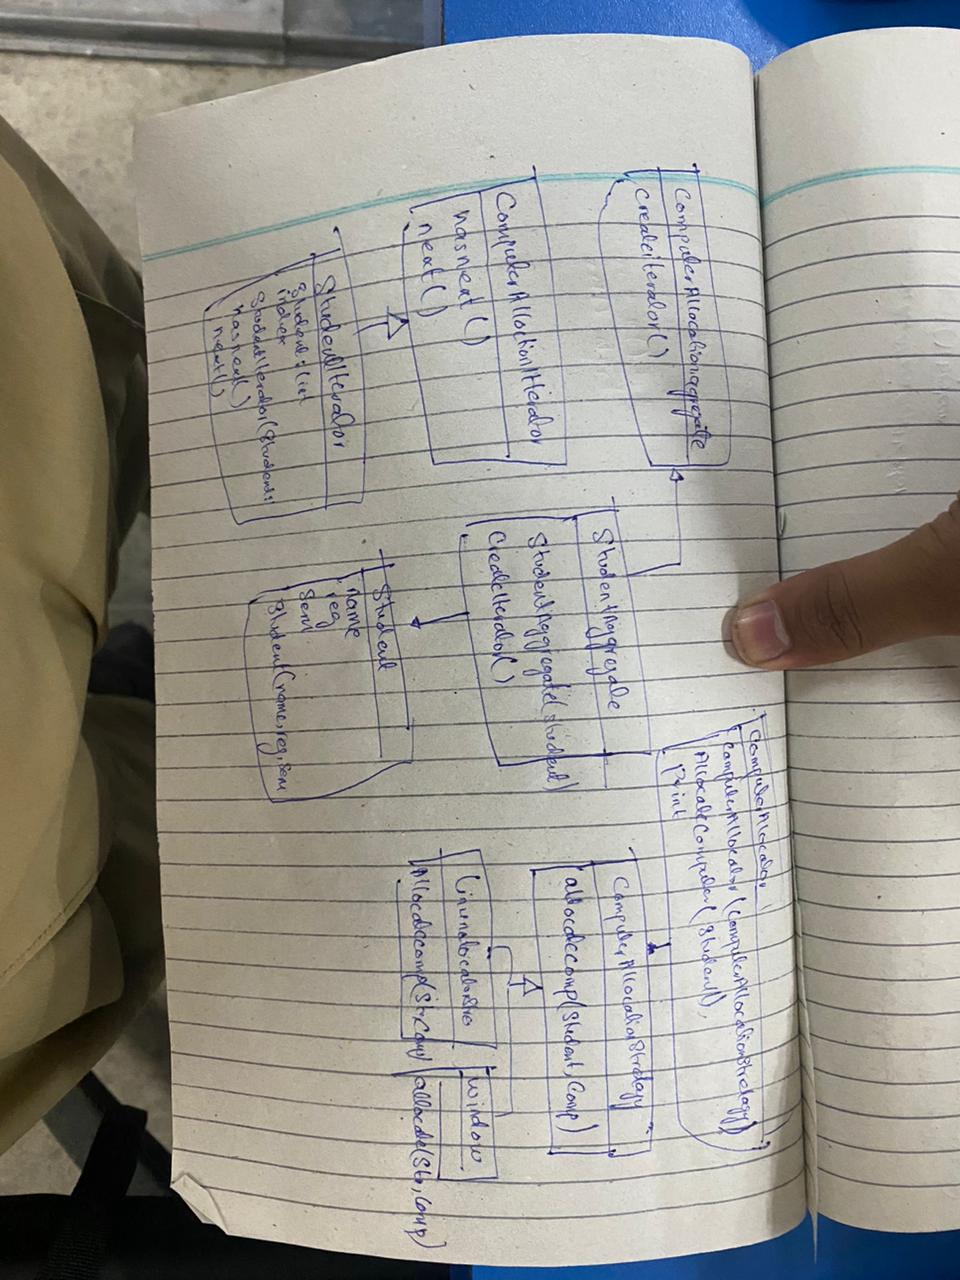 ComputerAllocationaggregate
CreateIterator()
ComputerAllocationIterator
hasnext()
next()
StudentIterator
Student: list
index
StudentIterator(Student:
hasnext()
next()
StudentAggregate
StudentAggregate(student)
CreateIterator()
Student
name
reg
Sem
Student(name, reg, sem
ComputerAllocator
ComputerAllocator(ComputerAllocationStrategy)
AllocateComputer(Student),
Print
ComputerAllocationStrategy
allocatecomp(Student, Comp)
AllocateComp(Str, Comp)
window
allocate(Str, Comp)